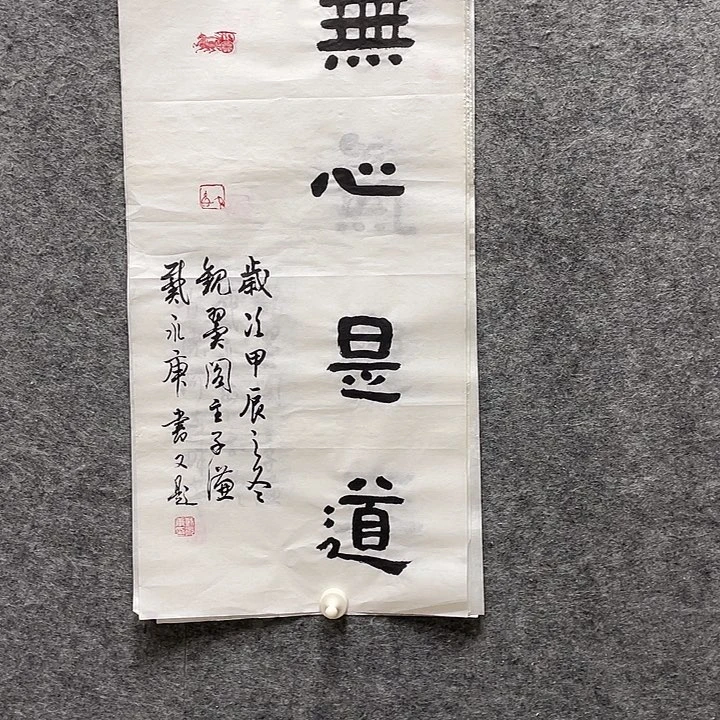 無心是道
歲次甲辰之冬
觀翼閣主子謙
戴永康書又題